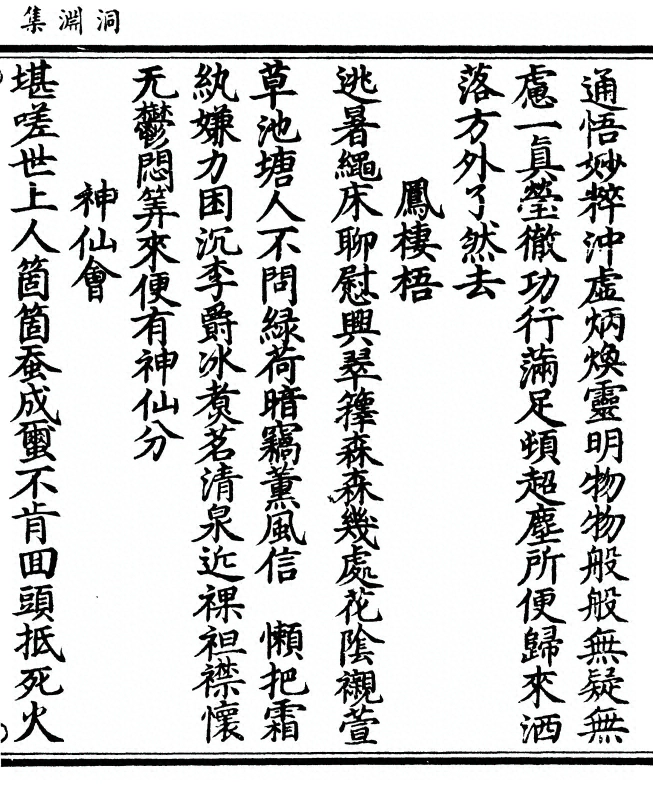 洞淵集
通悟妙粹沖虛炳煥靈明物物般般無疑無
慮一眞瑩徹功行滿足頓超塵所便歸來洒
落方外了然去
鳳棲梧
逃暑繩床聊慰興翠籜森森幾處花陰襯萱
草池塘人不問綠荷暗竊薰風信　懶把霜
紈嫌力困沉李爵冰煑茗清泉近裸袒襟懷
无鬱悶筭來便有神仙分
神仙會
堪嗟世上人箇箇蚕成䖆不肯囬頭抵死火